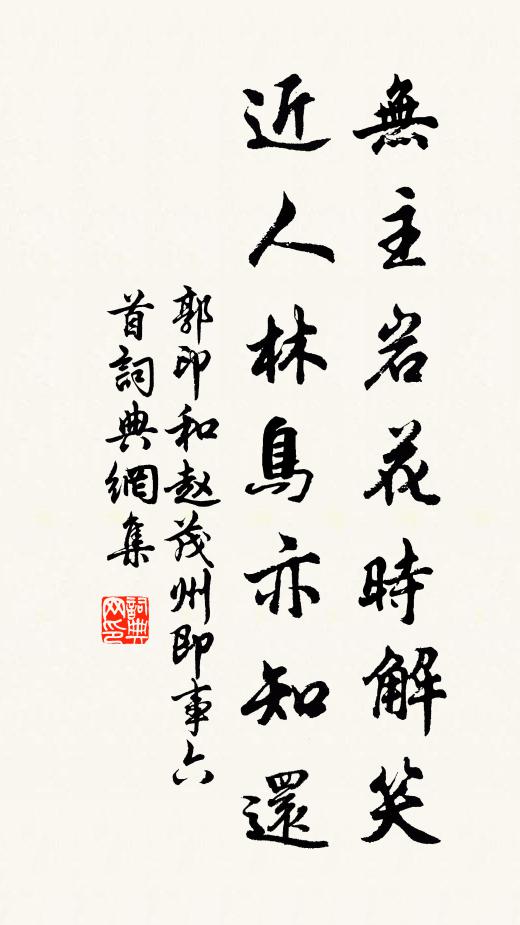 無主岩花時解笑
近人林鳥亦知還
郭印和赵茂州即事六
首詞典網集
詞典网印